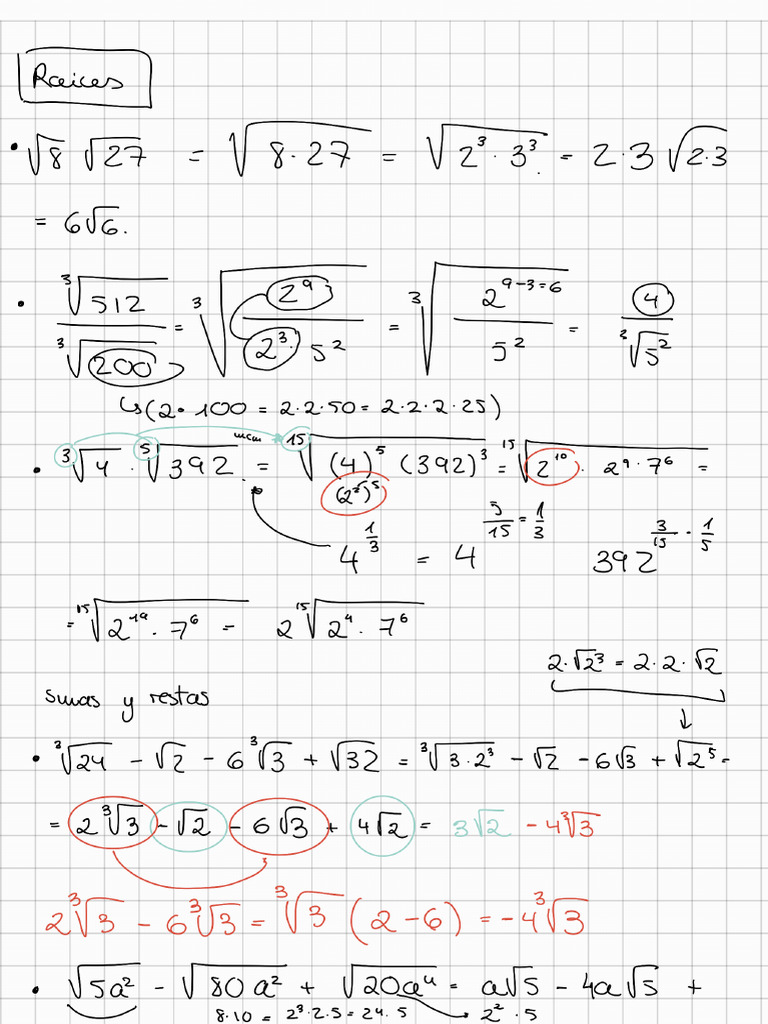 Raices
• √8 √27 = √(8·27) = √(2³·3³) = 2·3 √(2·3)
= 6√6.
• ∛512 / ∛200 = ∛(2⁹ / (2³·5²)) = ∛(2⁹⁻³⁼⁶ / 5²) = 4 / ∛(5²)
↳ (2·100 = 2·2·50 = 2·2·2·25)
• ∛4 · ⁵√392 = mcm ¹⁵√((4)⁵ (392)³) = ¹⁵√(2¹⁰ · 2⁹·7⁶) =
(2²)⁵
4^(1/3) = 4^(5/15 = 1/3) 392^(3/15 · 1/5)
= ¹⁵√(2¹⁹·7⁶) = 2 ¹⁵√(2⁴·7⁶)
2·√2³ = 2·2·√2
Sumas y restas
• ∛24 − √2 − 6∛3 + √32 = ∛(3·2³) − √2 − 6√3 + √2⁵ =
= 2∛3 − √2 − 6√3 + 4√2 = 3√2 − 4∛3
2∛3 − 6∛3 = ∛3 (2−6) = −4∛3
• √5a² − √80a² + √20a⁴ = a√5 − 4a√5 +
8·10 = 2³·2·5 = 24·5 2²·5